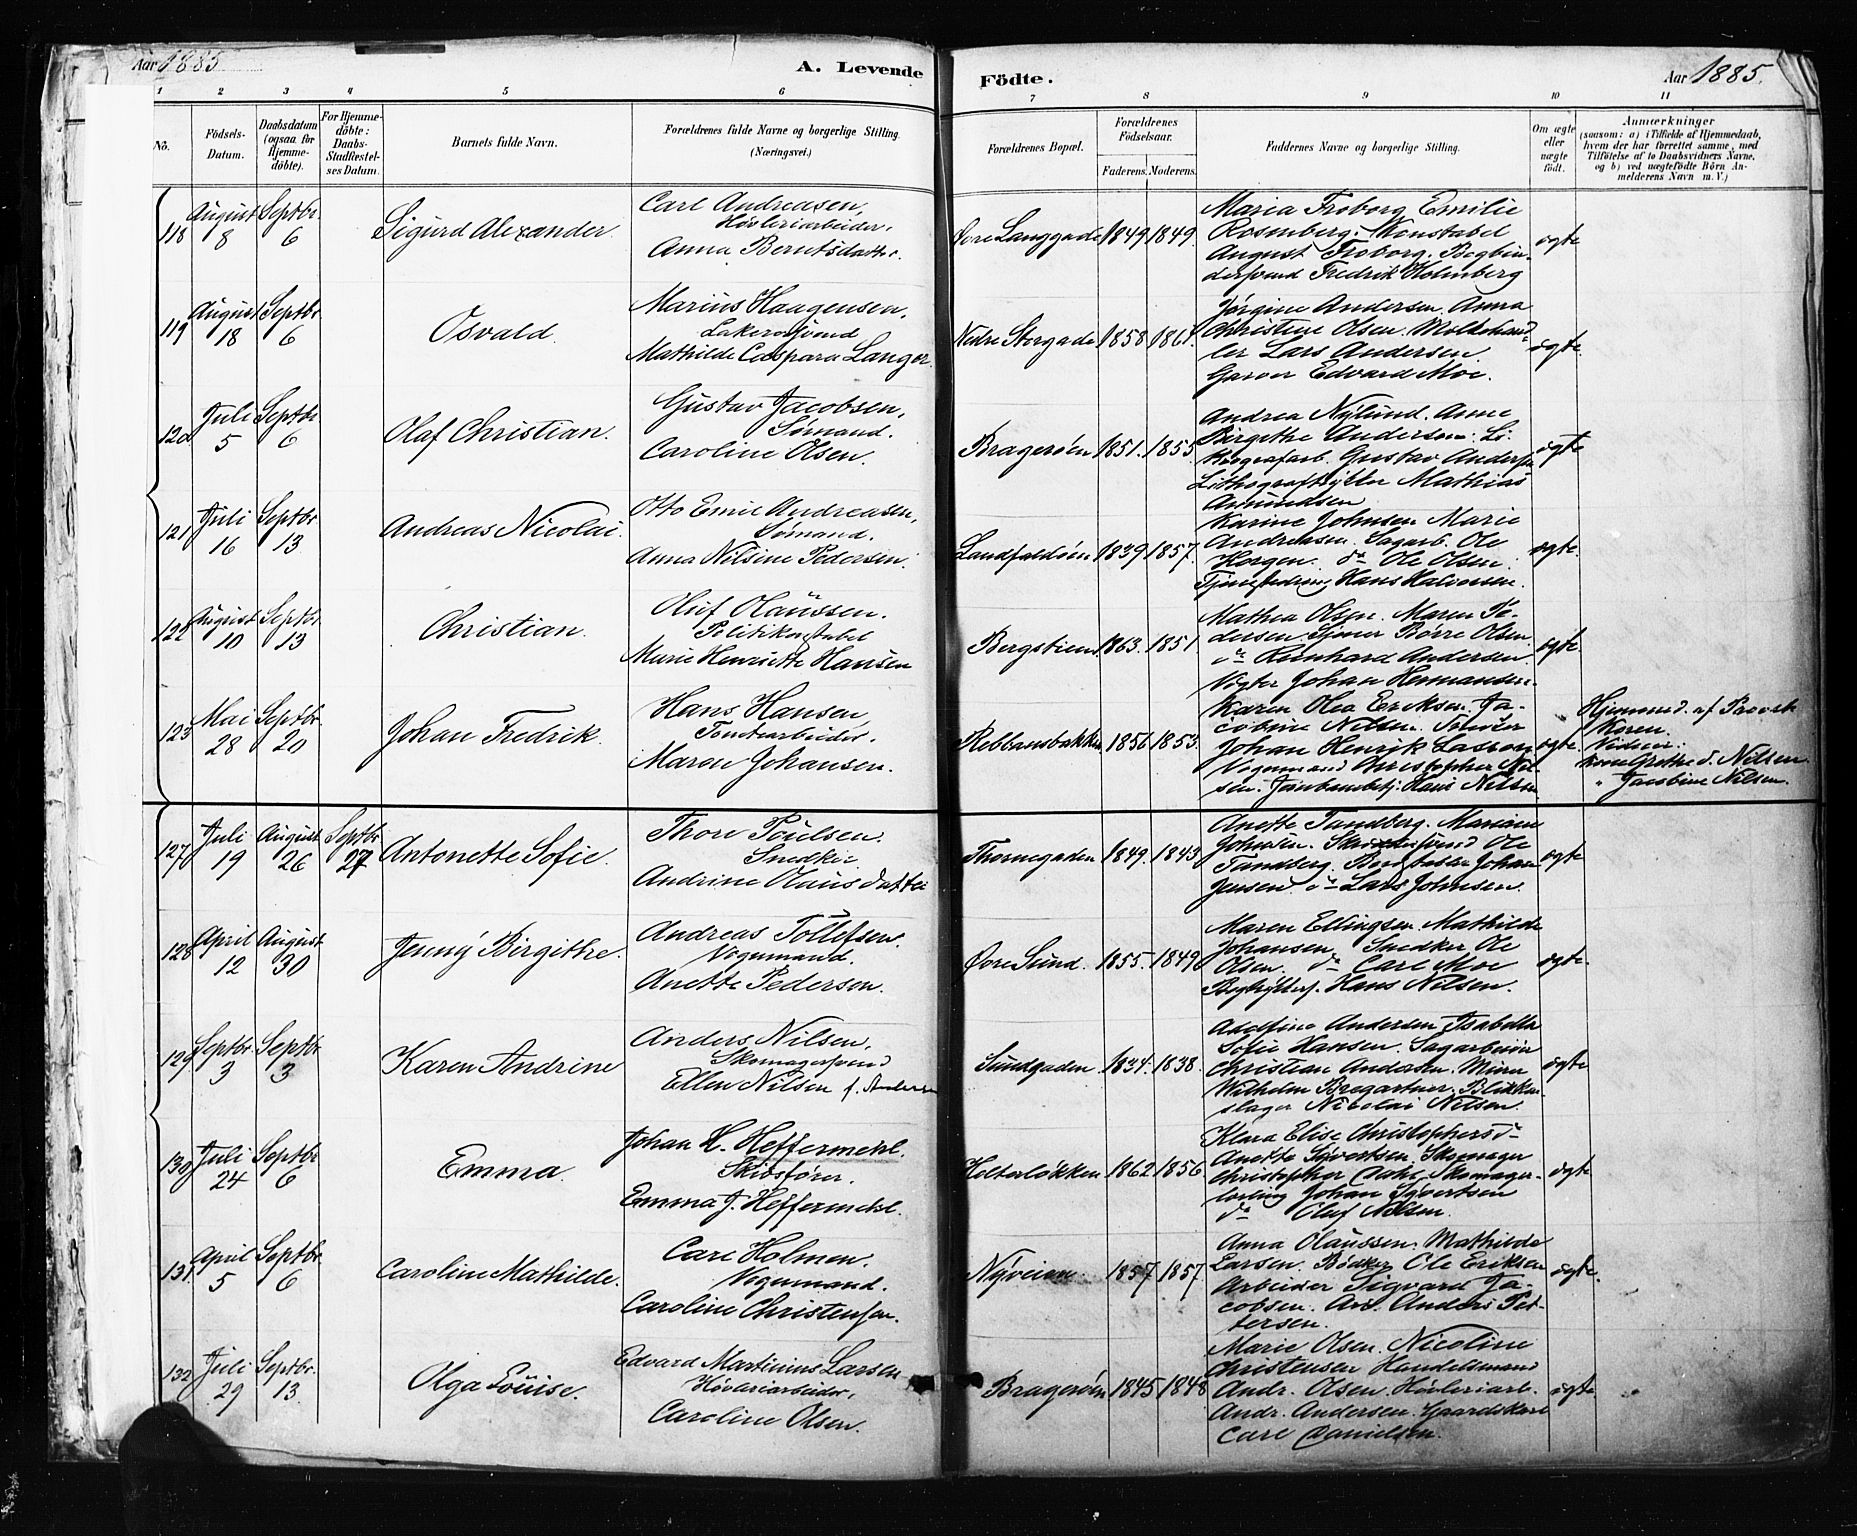 Aar 1885
A. Levende Födte.
Aar 1885.
1 2 3 4 5 6 7 8 9 10 11
No.
Födsels-Datum.
Daabsdatum (ogsaa for Hjemmedöbte).
For Hjemmedöbte: Daabs-Stadfæstelses Datum.
Barnets fulde Navn.
Forældrenes fulde Navne og borgerlige Stilling. (Næringsvei.)
Forældrenes Bopæl.
Forældrenes Födselsaar.
Faderens. Moderens.
Faddernes Navne og borgerlige Stilling.
Om ægte eller uægte födt.
Anmærkninger
(saasom: a) i Tilfælde af Hjemmedaab, hvem der har forrettet samme, med Tilföielse af to Daabsvidners Navne, og b) ved uægtefödte Börn Anmelderens Navn m. V.)
118 August 8 Septbr. 6 Sigurd Alexander.
Carl Andreasen,
Høvleriarbeider.
Anna Berntsdatter.
Övre Langgade 1849. 1849.
Maria Froborg. Emilie
Rosenberg. Konstabel
August Froborg. Bogbin-
dersvend Fredrik Holmberg
ægte
119 August 18 Septbr 6 Osvald.
Marius Haagensen,
Mathilde Caspara Langer.
Nedre Storgade 1858 1861.
Jørgine Andersen. Anna
Christine Olsen. Melkehand-
ler Lars Andersen.
Garver Edvard Moe.
ægte.
120 Juli 5 Septbr. 6 Olaf Christian.
Gustav Jacobsen,
Sømand.
Caroline Olsen.
Bragerøen 1851. 1855.
Andrea Nylund. Anne
Birgithe Andersen. Li-
Gustav Andersen
Mathias
Amundsen
ægte
121 Juli 16 Septbr. 13 Andreas Nicolai.
Otto Emil Andreasen,
Sømand.
Anna Nilsine Pedersen.
Landfaldøen 1839. 1857.
Karine Johnsen Marie
Andreasen. Sagarb. Ole
Horgen. do Ole Olsen.
Hans Halvorsen.
ægte.
122 August 10 Septbr. 13 Christian.
Oluf Olaussen.
Politikonstabel
Marie Henriette Hansen
Bergstien. 1863. 1851
Mathea Olsen. Maren Pe-
dersen. Sjøm Børre Olsen
do Reinhard Andersen.
Vægter Johan Hermansen.
ægte.
123 Mai 28 Septbr. 20 Johan Fredrik.
Hans Hansen,
Tomtearbeider.
Maren Johansen.
Rebbansbakken 1856 1853.
Karen Olea Eriksen. Ja-
cobine Nilsen.
Johan Henrik
Vognmand Christopher Nil-
sen. Jernbanebetj. Hans Nilsen
ægte.
Hjemmed. af Provst
Koren.
Vidner:
Grethe d. Nilsen
" Jacobine Nilsen.
127 Juli 19 August 26 Septbr. 27 Antonette Sofie.
Thore Poulsen.
Snedker
Andrine Olausdatter
Thornegaden 1849. 1843
Anette Tandberg. Mariane
Johnsen. Ole
Tandberg. Johan
Jensen. do Lars Johnsen.
ægte
128 April 12 August 30 Jenny Birgithe.
Andreas Tollefsen.
Vognmand.
Anette Pederson.
Övre Sund. 1855. 1849
Maren Ellingsen. Mathilde
Johansen. Snedker Ole
Olsen. do Carl Moe
Hans Nilsen.
ægte.
129 Septbr. 3 Septbr 3 Karen Andrine
Anders Nilsen,
Skomagersvend
Ellen Nilsen f. Andersen
Sundgaden 1834. 1838.
Adolfine Andersen Isabella
Sofie Hansen. Sagarbeider
Christian Andersen. Murer
Wilhelm Bregartner. Blikken-
slager Nicolai Nilsen.
ægte
130 Juli 24 Septbr 6 Emma.
Johan H. Heffermehl.
Skibsfører.
Emma J. Heffermehl.
Holterløkken 1862. 1856
Klara Elise Christophersd-
Anette Syvertsen. Skomager
Christopher Skomager-
lærling Johan Syvertsen
do Oluf Nilsen.
ægte
131 April 5 Septbr. 6 Caroline Mathilde.
Carl Holmen.
Vognmand.
Caroline Christensen.
Nyveien. 1857 1857
Anna Olaussen. Mathilde
Larsen. Bødker Ole Eriksen
Arbeider Sigvard Ja-
cobsen. Arb. Anders Pet-
tersen.
ægte.
132 Juli 29 Septbr. 13. Olga Louise.
Edvard Martinius Larsen
Høvleriarbeider,
Caroline Olsen.
Bragerøen 1845 1848
Marie Olsen. Nicoline
Christensen Handelsmand
Andr. Olsen. Høvleriarb.
Andr. Andersen. Gaardskarl
Carl Danielsen.
ægte